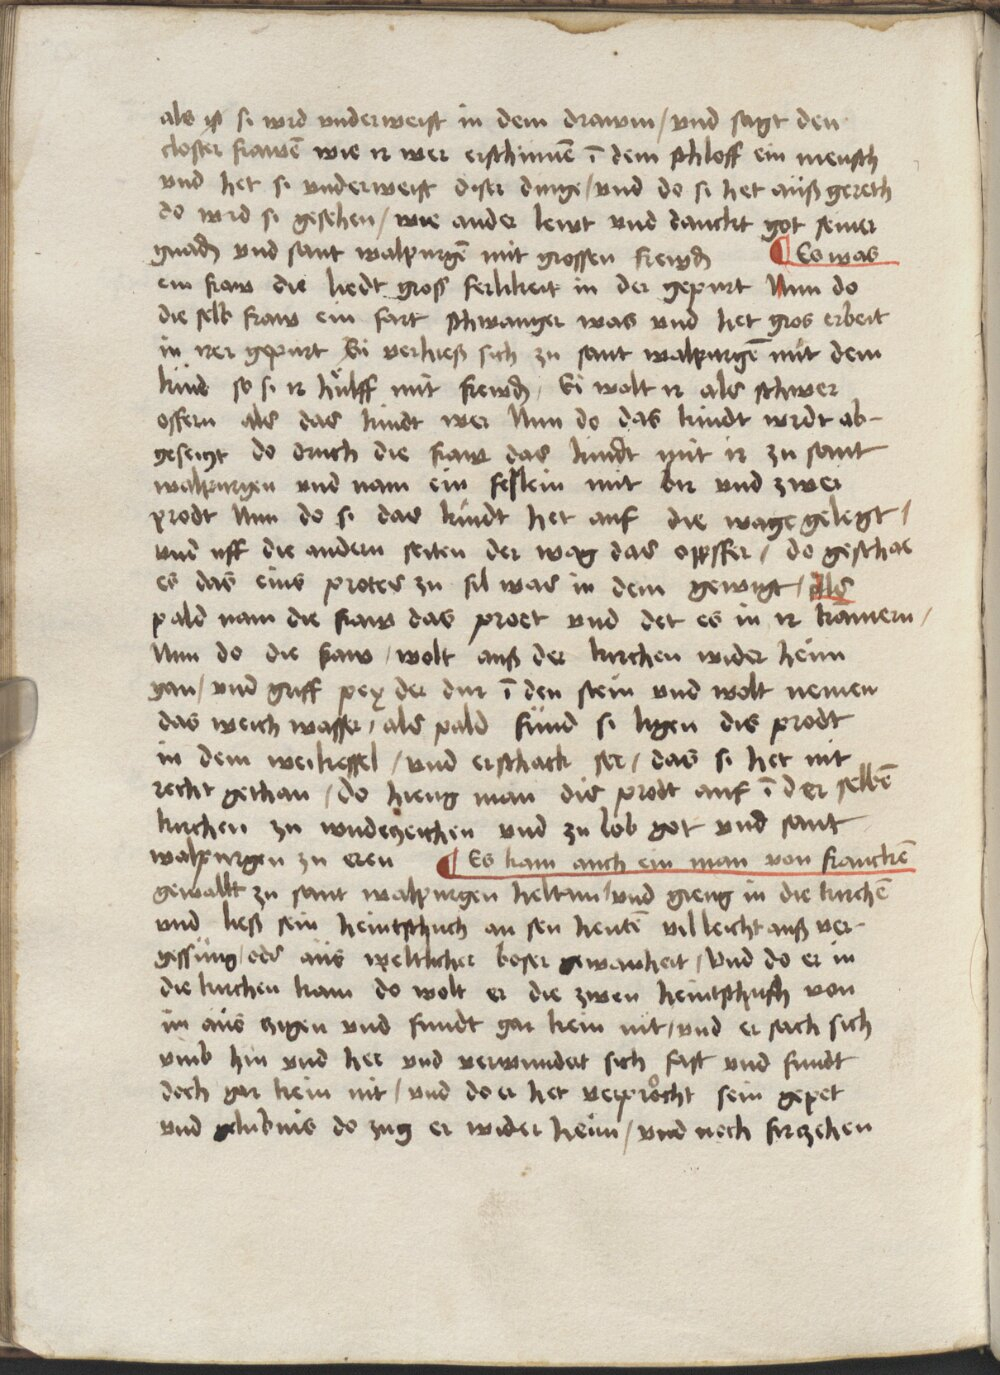 als ist si wrd vnderweist in dem drawm / vnd sagt den
closter frawē wie ir wer erschinnē ī dem schloff ein mensch
vnd het si vnderweist diser dinge / vnd do si het auß gereth
do wrd si gesehen / wie ander lewt vnd danckt got seiner
gnadn vnd sant walpurgē mit grossen frewdn ¶ Es was
ein fraw die liedt gros ferlikeit in der gepurt Nun do
die selb fraw ein fart schwanger was vnd het gros erbeit
in irer gepurt Si verhieß sich zu sant walpurgē mit dem
kind so si ir hülff mit frewdn / Si wolt ir als schwer
offern als das kindt wer Nun do das kindt wrdt ab-
geseczt do druch die fraw das kindt mit ir zu sant
walpurgen vnd nam ein feslein mit bir vnd zwei
prodt Nun do si das kindt het auf die wage gelegt /
vnd vff die andern seiten der wag das oppffer / do geschae
es das eins protes zu fil was in dem gewigt / Als
pald nam die fraw das proet vnd det es in ir kamern /
Nun do die fraw / wolt auß der kirchen wider heim
gan / vnd griff pey der dur ī den stein vnd wolt nemen
das weich wasser / als pald fund si ligen dis prodt
in dem weikessel / vnd erschack ser / das si het nit
recht gethan / do hieng man dis prodt auf ī der selbē
kirchen zu wndezeichen vnd zu lob got vnd sant
walpurgen zu eren ¶ Es kam auch ein man von franckē
gewallt zu sant walpurgen heltum / vnd gieng in die kirchē
vnd ließ sein heintschuch an sen hentē villeicht auß ver-
gessung / oder aus weltlicher boser gewanheit / Vnd do er in
die kirchen kam do wolt er die zwen heintschuh von
im aus zigen vnd fundt gar kein nit / vnd er sach sich
vmb hin vnd her vnd verwundert sich fast vnd fundt
doch gar kein nit / vnd do er het verprocht sein gepet
vnd glubnis do zug er wider heim / vnd noch firczehen